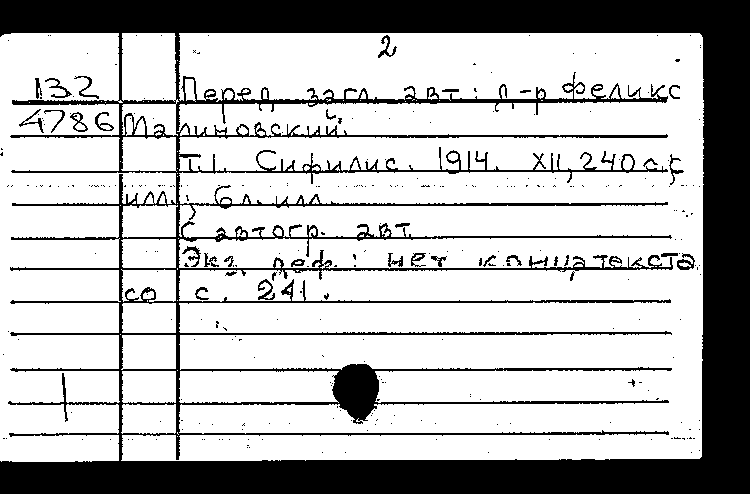 2
132 Перед загл. авт.: д-р Феликс
4786 Малиновский.
Т.I. Сифилис. 1914. XII, 240 с. с
илл.; 6 л. илл.
С автогр. авт.
Экз. деф.: нет конца текста
со с. 241.